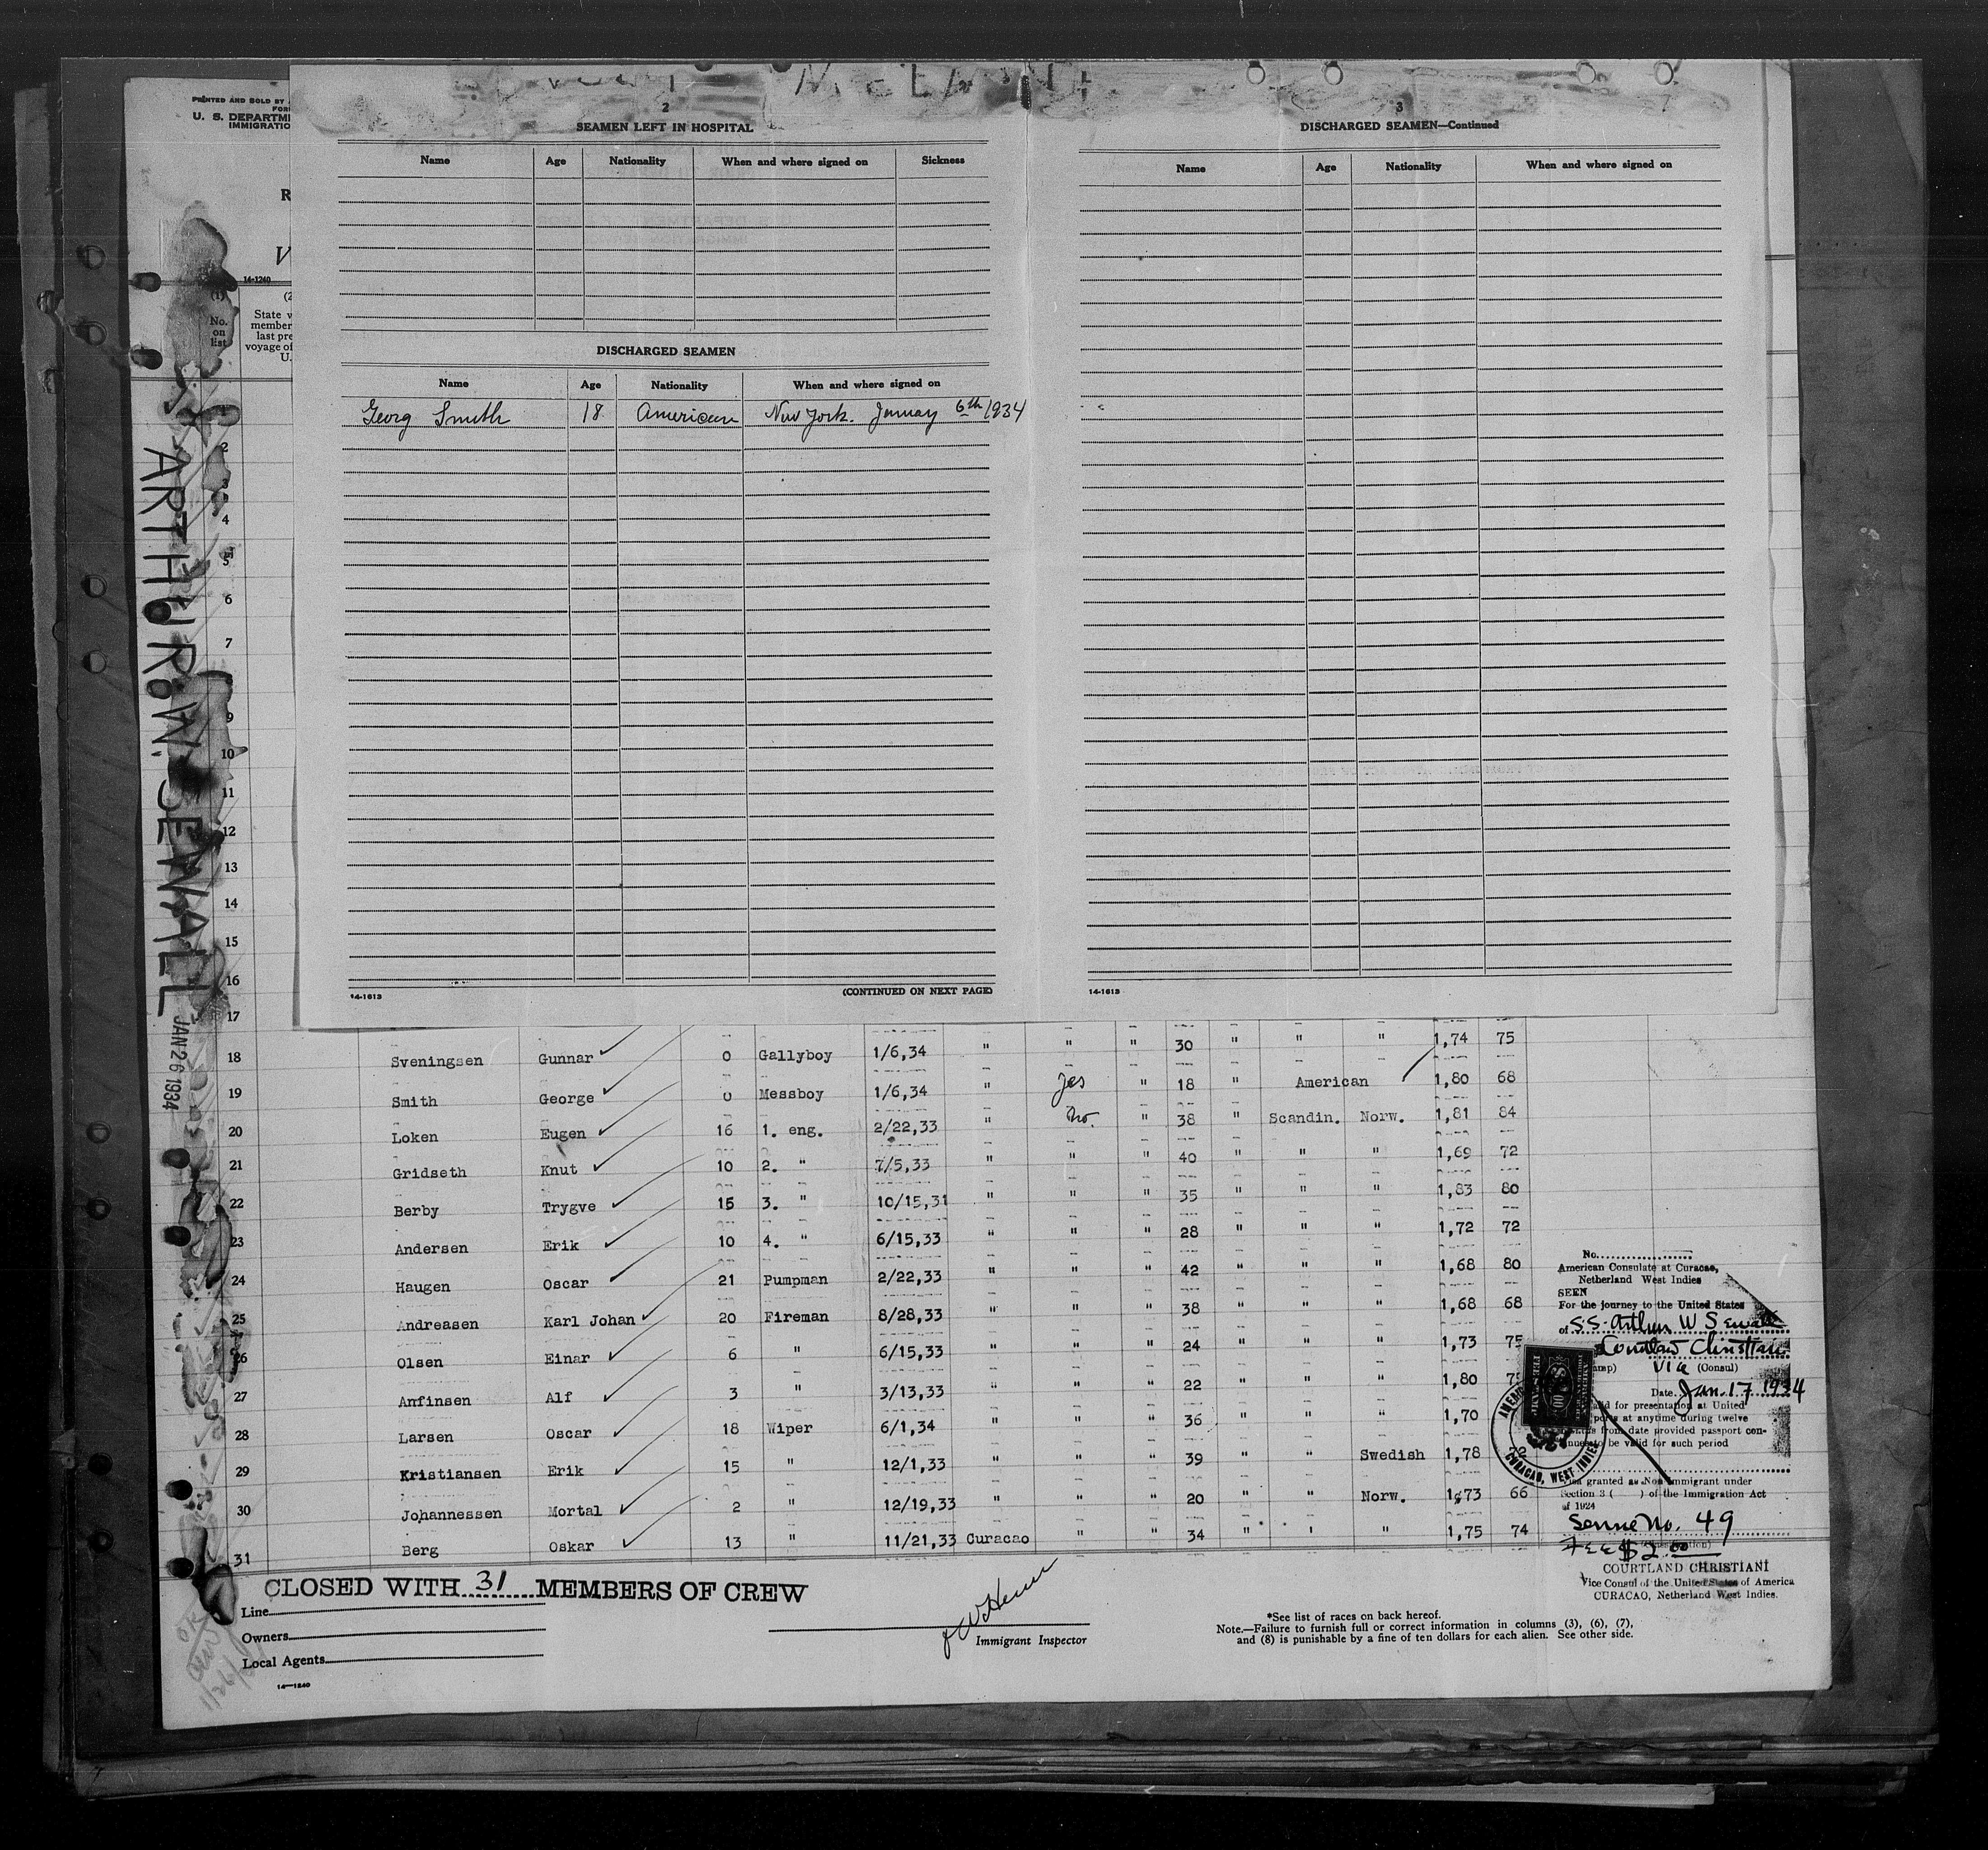 PRINTED AND SOLD BY
U. S. DEPARTME
IMMIGRATIO
R
V
14-1240
(1)
No.
on
list
(2
State w
member
last pre
voyage of
U.
2
SEAMEN LEFT IN HOSPITAL
Name Age Nationality When and where signed on Sickness
DISCHARGED SEAMEN
Name Age Nationality When and where signed on
Georg Smith 18 American New York. January 6th 1934
14-1613 (CONTINUED ON NEXT PAGE)
3
DISCHARGED SEAMEN—Continued
Name Age Nationality When and where signed on
14-1613
ARTHUR W. SEWALL
JAN 26 1934
2
3
4
5
6
7
8
9
10
11
12
13
14
15
16
17
18 Sveningsen Gunnar 0 Gallyboy 1/6,34 " " " 30 " " " 1,74 75
19 Smith George 0 Messboy 1/6,34 " Yes " 18 " American 1,80 68
20 Loken Eugen 16 1. eng. 2/22,33 " No. " 38 " Scandin. Norw. 1,81 84
21 Gridseth Knut 10 2. " 7/5,33 " " " 40 " " " 1,69 72
22 Berby Trygve 15 3. " 10/15,31 " " " 35 " " " 1,83 80
23 Andersen Erik 10 4. " 6/15,33 " " " 28 " " " 1,72 72
24 Haugen Oscar 21 Pumpman 2/22,33 " " " 42 " " " 1,68 80
25 Andreasen Karl Johan 20 Fireman 8/28,33 " " " 38 " " " 1,68 68
26 Olsen Einar 6 " 6/15,33 " " " 24 " " " 1,73 75
27 Anfinsen Alf 3 " 3/13,33 " " " 22 " " " 1,80
28 Larsen Oscar 18 Wiper 6/1,34 " " " 36 " " " 1,70
29 Kristiansen Erik 15 " 12/1,33 " " " 39 " " Swedish 1,78
30 Johannessen Mortal 2 " 12/19,33 " " " 20 " " Norw. 1,73 66
31 Berg Oskar 13 " 11/21,33 Curacao " " 34 " " " 1,75 74
No.
American Consulate at Curacao,
Netherland West Indies
SEEN
For the journey to the United States
of S.S. Arthur W Sewall
Courtland Christiani
Via (Consul)
Date Jan. 17 1934
for presentation at United
ports at anytime during twelve
from date provided passport con-
to be valid for such period
CURACAO, WEST INDIES
granted as Non Immigrant under
Section 3 ( ) of the Immigration Act
of 1924
Service No. 49
Fee $2.00
COURTLAND CHRISTIANI
Vice Consul of the United States of America
CURACAO, Netherland West Indies.
CLOSED WITH 31 MEMBERS OF CREW
Line
Owners
Local Agents
14—1240
Immigrant Inspector
*See list of races on back hereof.
Note.—Failure to furnish full or correct information in columns (3), (6), (7),
and (8) is punishable by a fine of ten dollars for each alien. See other side.